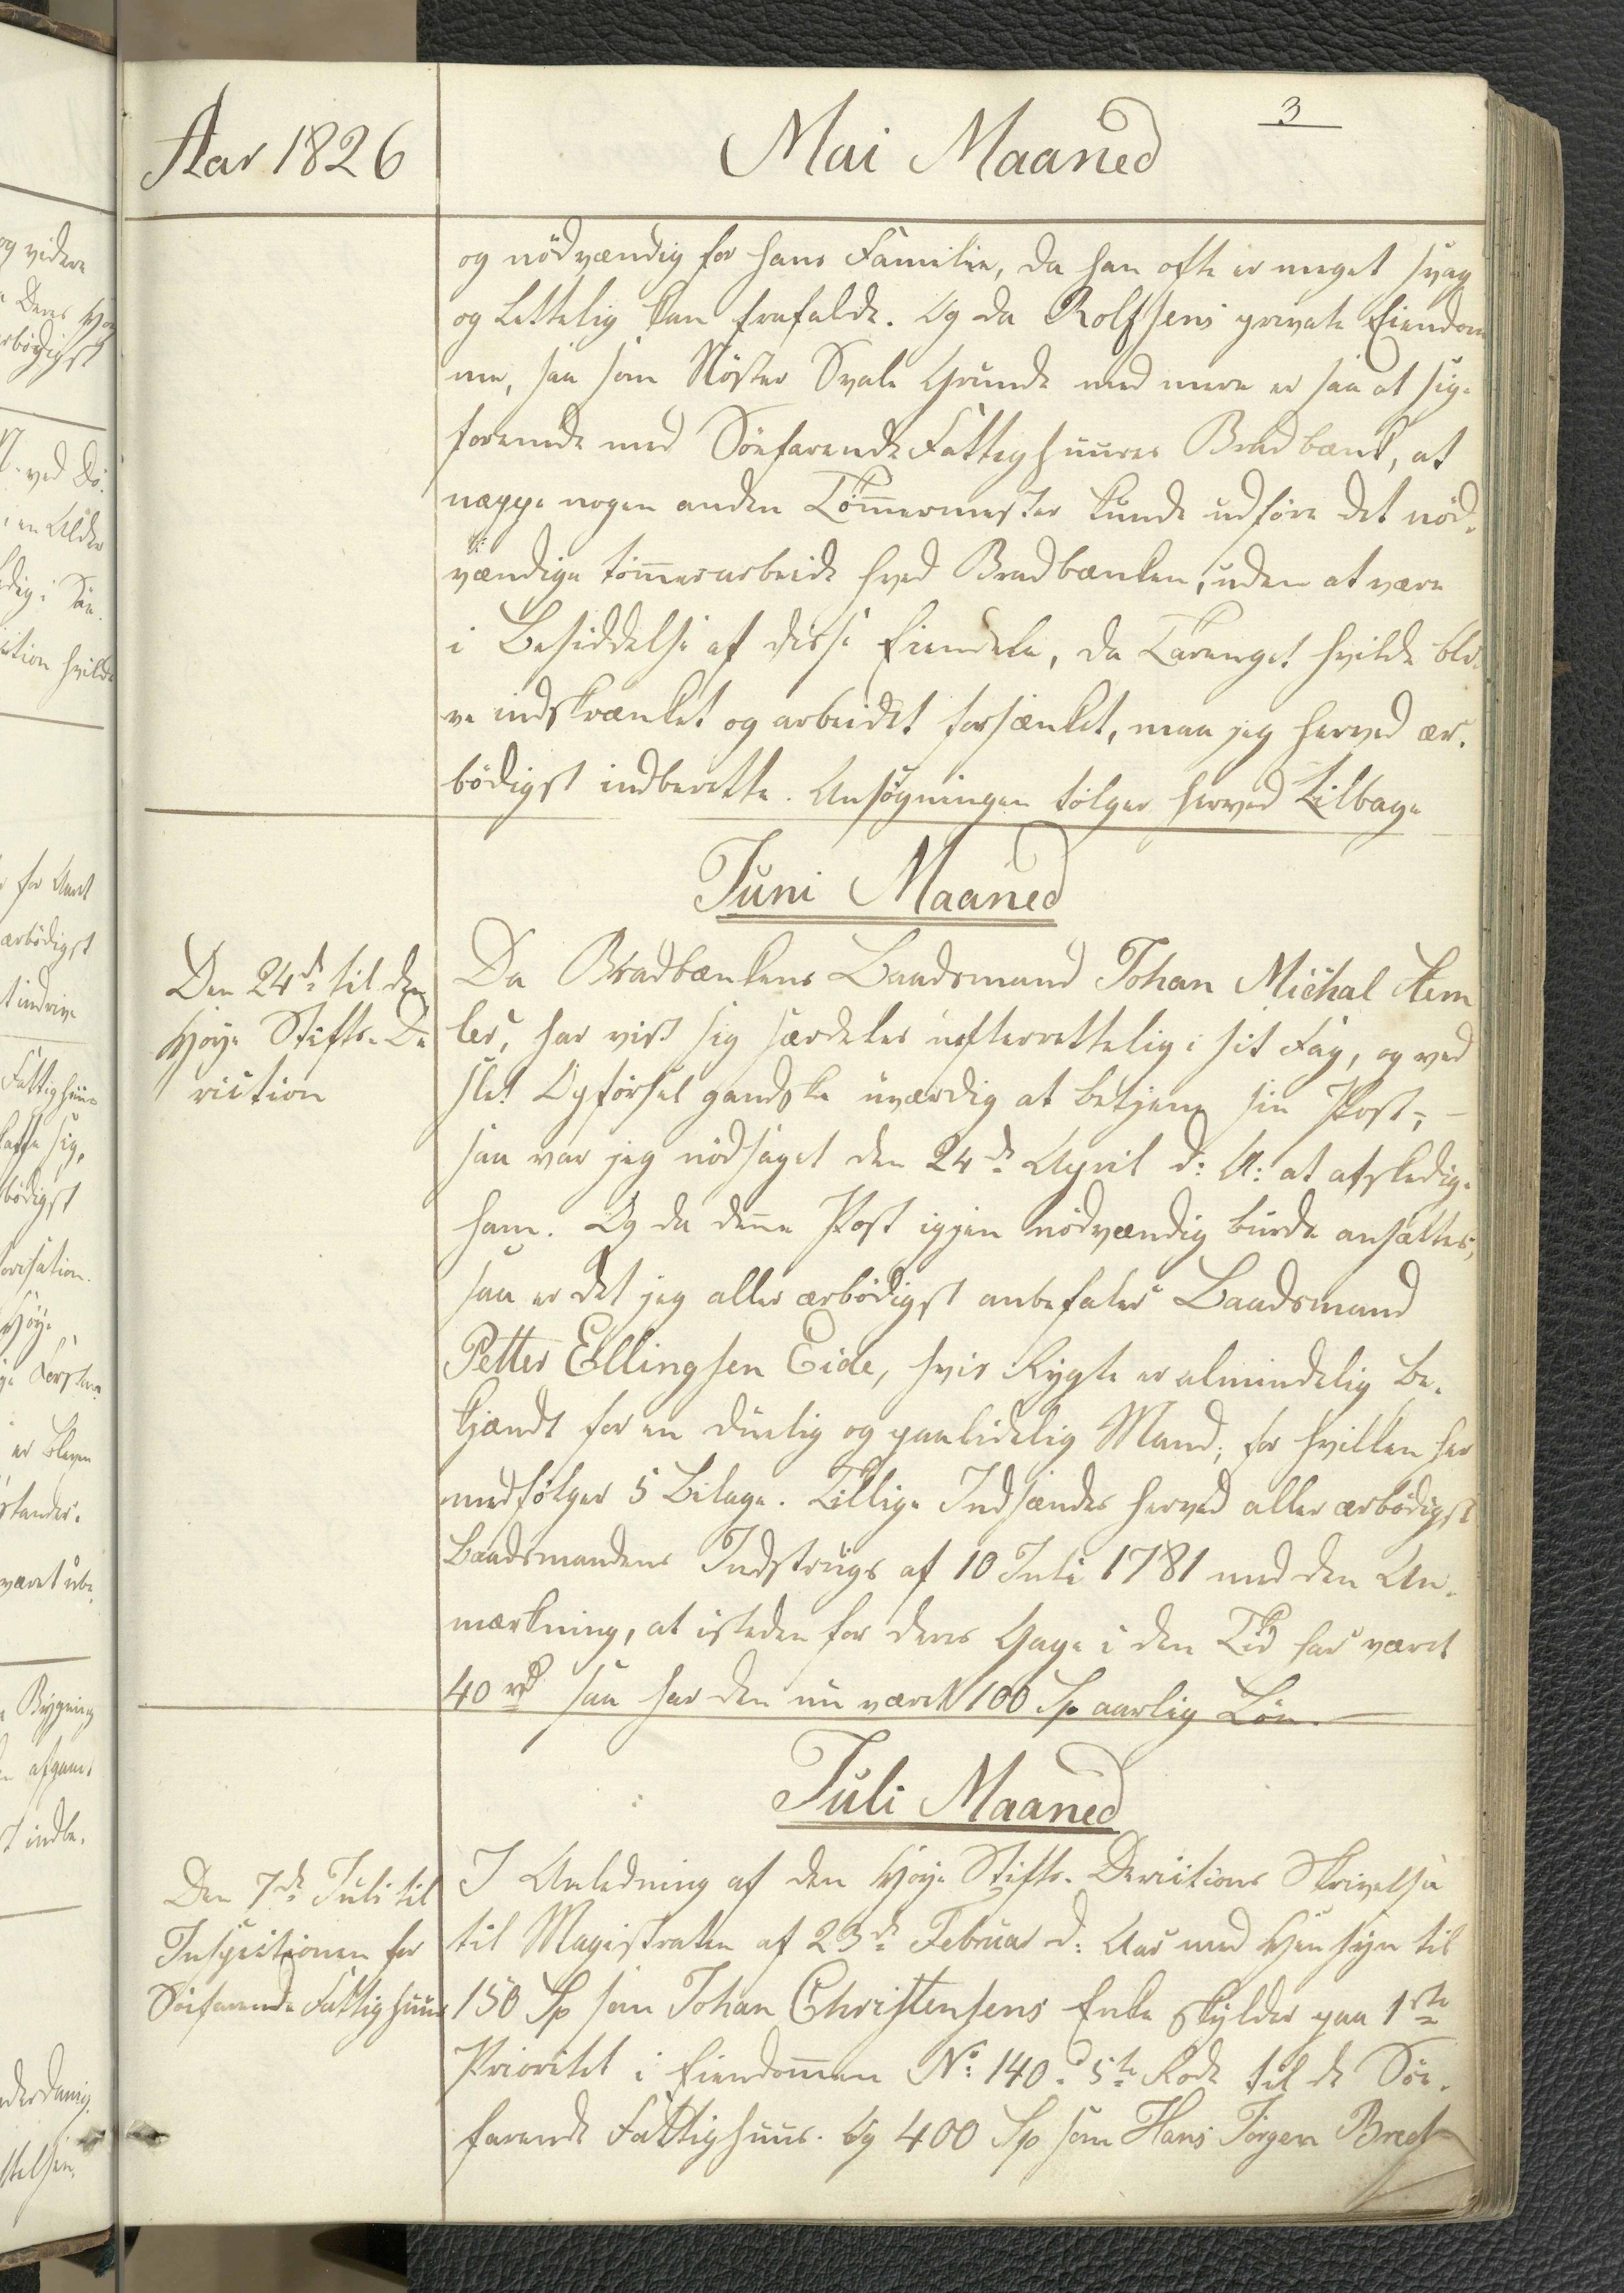 Aar 1826
Mai Maaned
3
og nödvændig for hans Familie, da han ofte er meget svag
og Lettelig kan frafalde. Og da Rolfsens private Eiendom
me, saa som Nöster Svale Grunde med mere er saa at sige
forenede med Söefarende Fattighuuses Bradbænk, at
neppe nogen anden Tömmermester kunde udføre det nöd-
vændige tömmerarbeide hved Bradbænken, uden at være
i Besiddelse af disse Eiendele, da Tarenget hvilde bli-
ve indskrænket og arbeidet forsænket, maa jeg herved ær-
bödigst indberette. Ansøgningen følger herved Tilbage
Juni Maaned
Den 24de til den
Høye Stifts-De
riction
Da Bradbænkens Baadsmand Johan Michal Hem
ler, har vist sig særdeles uefterrettelig i sit Fag, og ved
slet Opførsel gandske uværdig at betjene sin Post; -
saa var jeg nödsaget den 24de April d: A: at afskedige
ham. Og da denne Post igjen nödvændig burde ansættes,
saa er det jeg aller ærbödigst anbefaler Baadsmand
Petter Ellingsen Eide, hvis Rygte er almindelig be-
kjændt for en duelig og paalidelig Mand; for hvilken her
medfølger 5 Bilage. Tillige Indsændes herved aller ærbödigst
Baadsmandens Indstrugs af 10 Juli 1781 med den An-
mærkning, at isteden for deres Gage i den Tid har været
40 rd saa har den nu været 100 Sp aarlig Lön.
Juli Maaned
Den 7de Juli til
Inspectionen for
Söefarende Fattighuus
I Anledning af den Høye Stifts-Derictions Skrivelse
til Magistraten af 23de Februar d: Aar med Hensyn til
150 Sp som Johan Christensens Enke skylder paa 1ste
Prioritet i Eiendommen No: 140. 5te Rode til de Söe-
farende Fattighuus. Og 400 Sp som Hans Jørgen Bredt